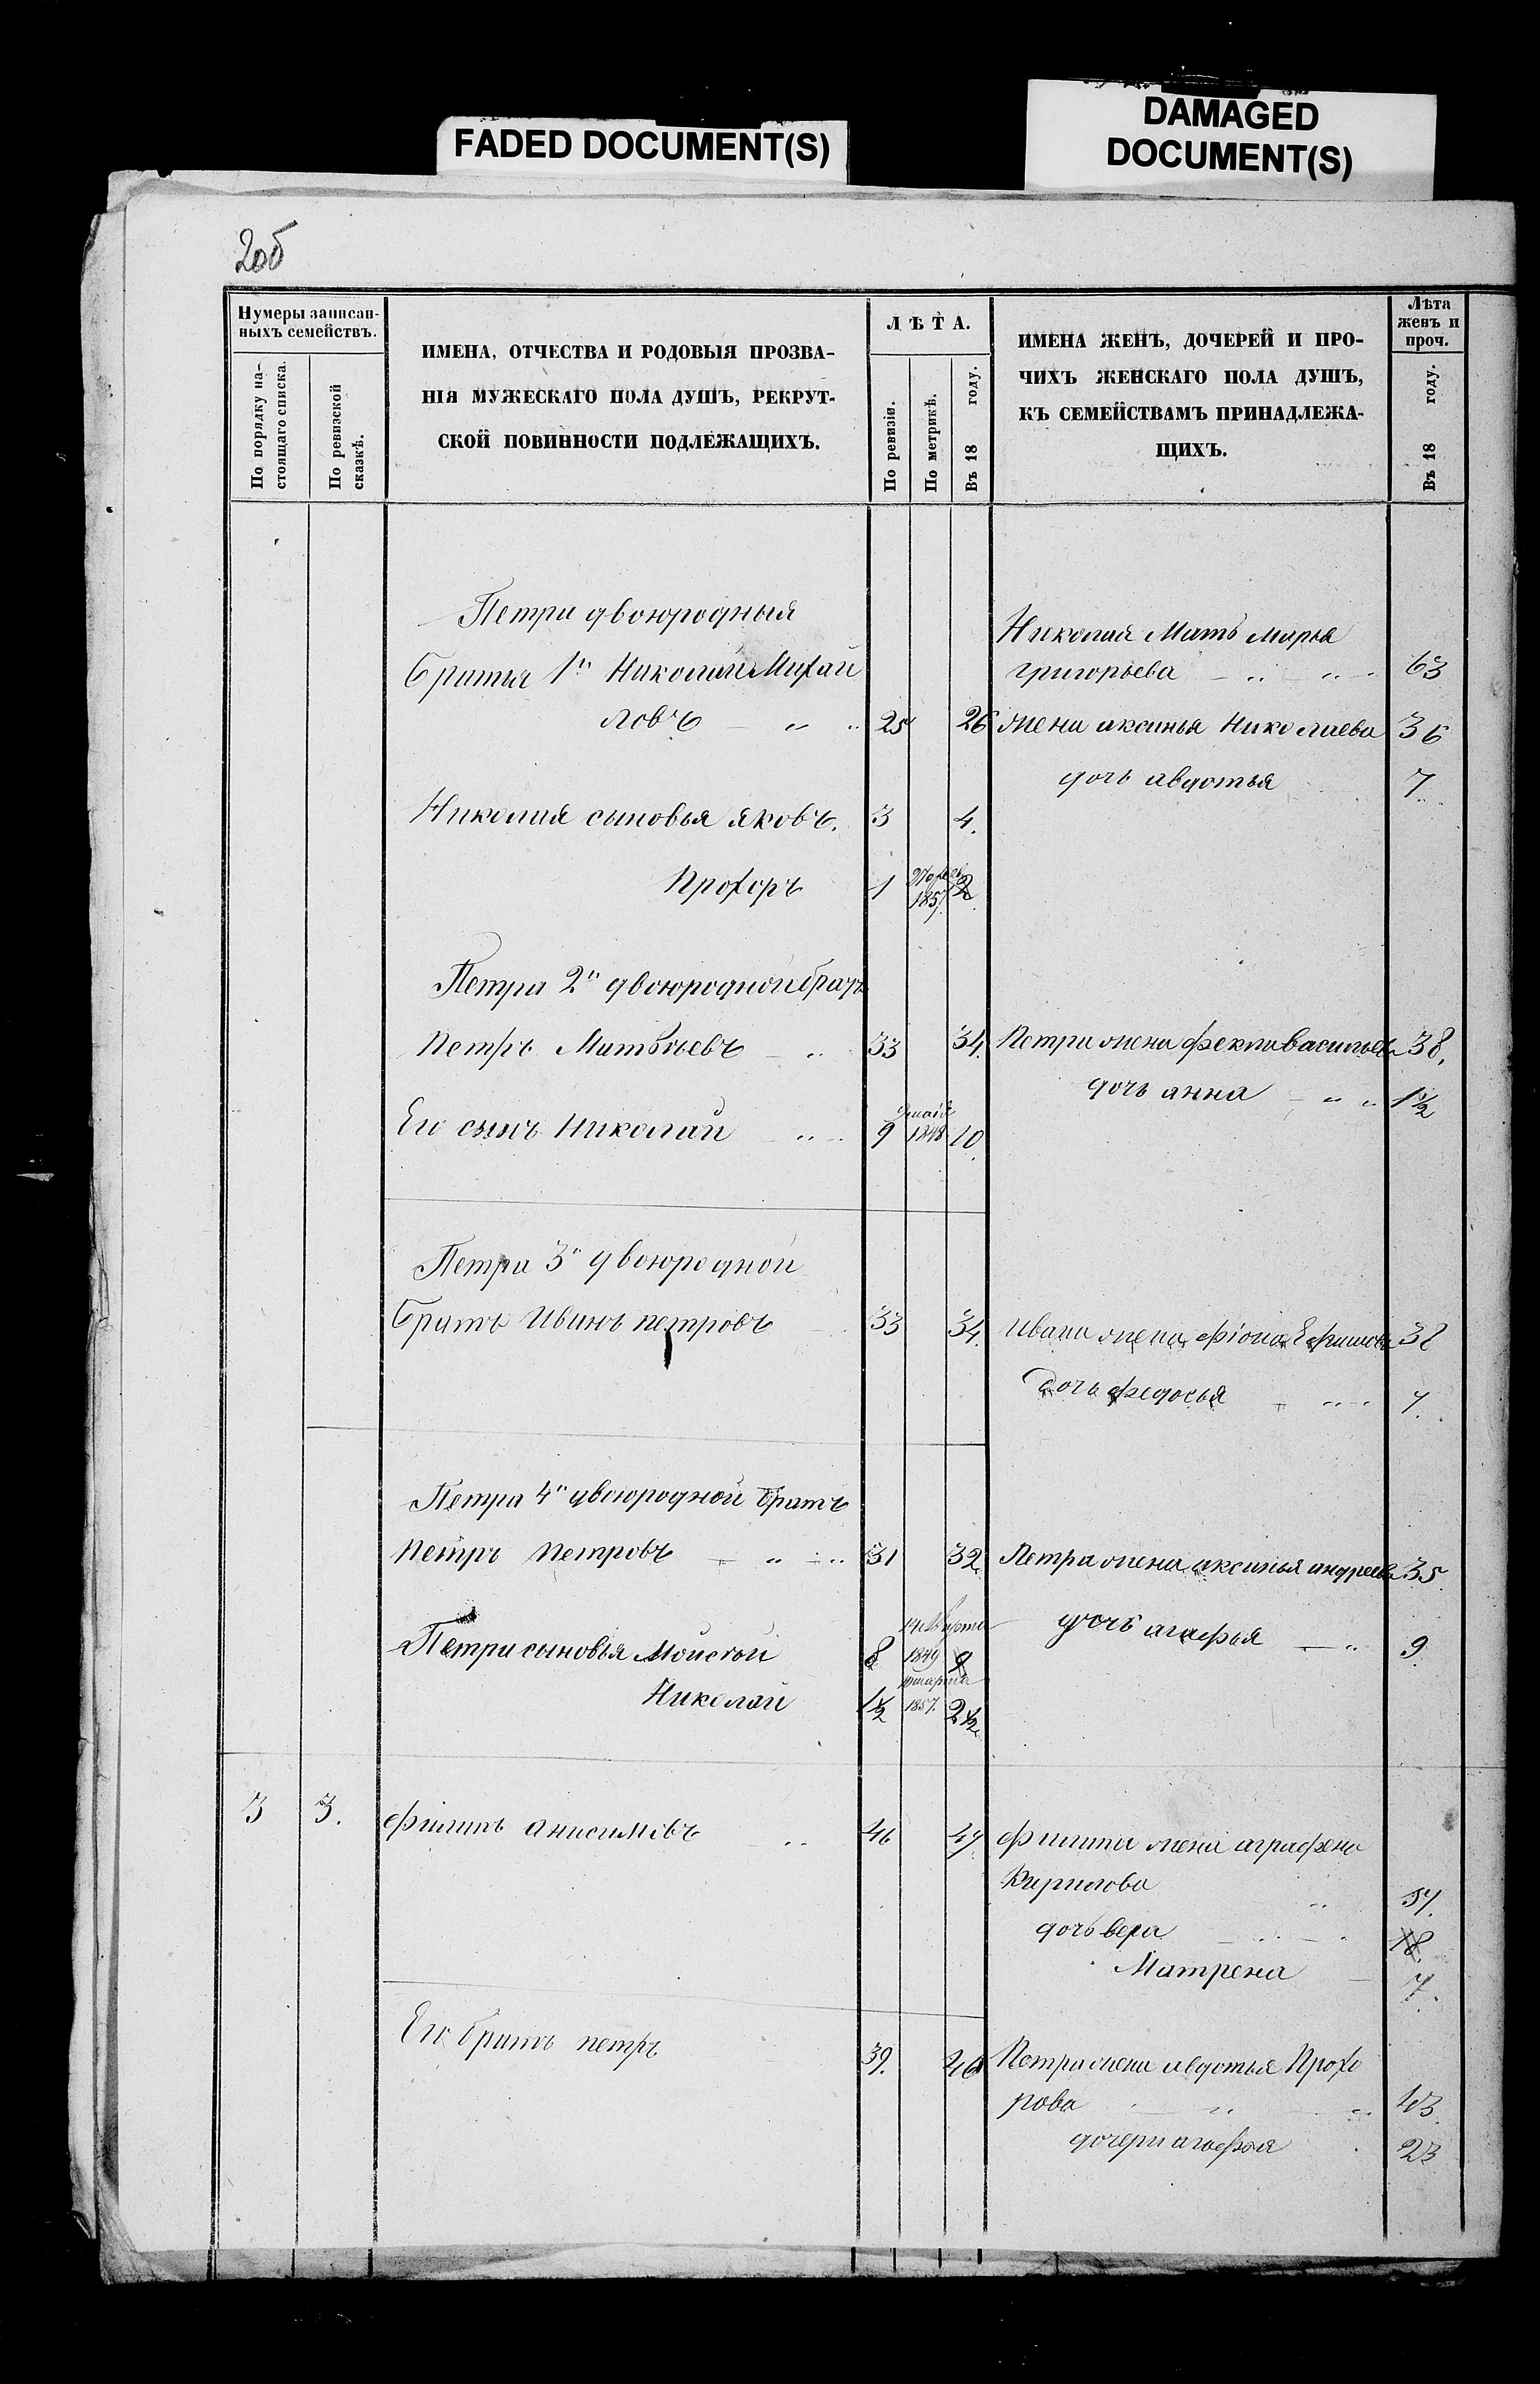 FADED DOCUMENT(S)
DAMAGED
DOCUMENT(S)
Нумеры записан-
ныхъ семействъ.
По порядку на-
стоящаго списка.
По ревизской
сказкѣ.
ИМЕНА, ОТЧЕСТВА И РОДОВЫЯ ПРОЗВА-
НІЯ МУЖЕСКАГО ПОЛА ДУШЪ, РЕКРУТ-
СКОЙ ПОВИННОСТИ ПОДЛЕЖАЩИХЪ.
ЛѢТА.
По ревизіи.
По метрикѣ.
Въ 18 году.
ИМЕНА ЖЕНЪ, ДОЧЕРЕЙ И ПРО-
ЧИХЪ ЖЕНСКАГО ПОЛА ДУШЪ,
КЪ СЕМЕЙСТВАМЪ ПРИНАДЛЕЖА-
ЩИХЪ.
Лѣта
женъ и
проч.
Въ 18 году.
Петра двоюродныя
Братья 1й Николай Михай
ловъ 25 26
Николая Мать марья
григорьева 63
жена аксинья Николаева 36
дочь авдотья 7
Николая сыновья яковъ. 3 4.
Прохоръ 1 1857 2
Петра 2й двоюродной братъ
Петръ Матвѣевъ 33 34.
Петра жена фекла васильева 38,
дочь анна 1½
Его сынъ Николай 9 1848 10.
Петра 3й двоюродной
братъ Иванъ петровъ 33 34.
Ивана жена фіона Ефимова 38
дочь федосья 7.
Петра 4й двоюродной братъ
Петръ Петровъ 31 32
Петра жена аксинья андреева 35
Петра сыновья Мойсей 8 марта 1849 9
дочь агафья 9.
Николай 1½ марта 1857. 2½
3 3. филипъ анисимовъ 46 47
филипа жена аграфена
Кирилова 57.
дочь вера 18.
Матрена 7.
Его братъ петръ 39. 40
Петра жена авдотья Прохо
рова 43.
дочери агафья 23